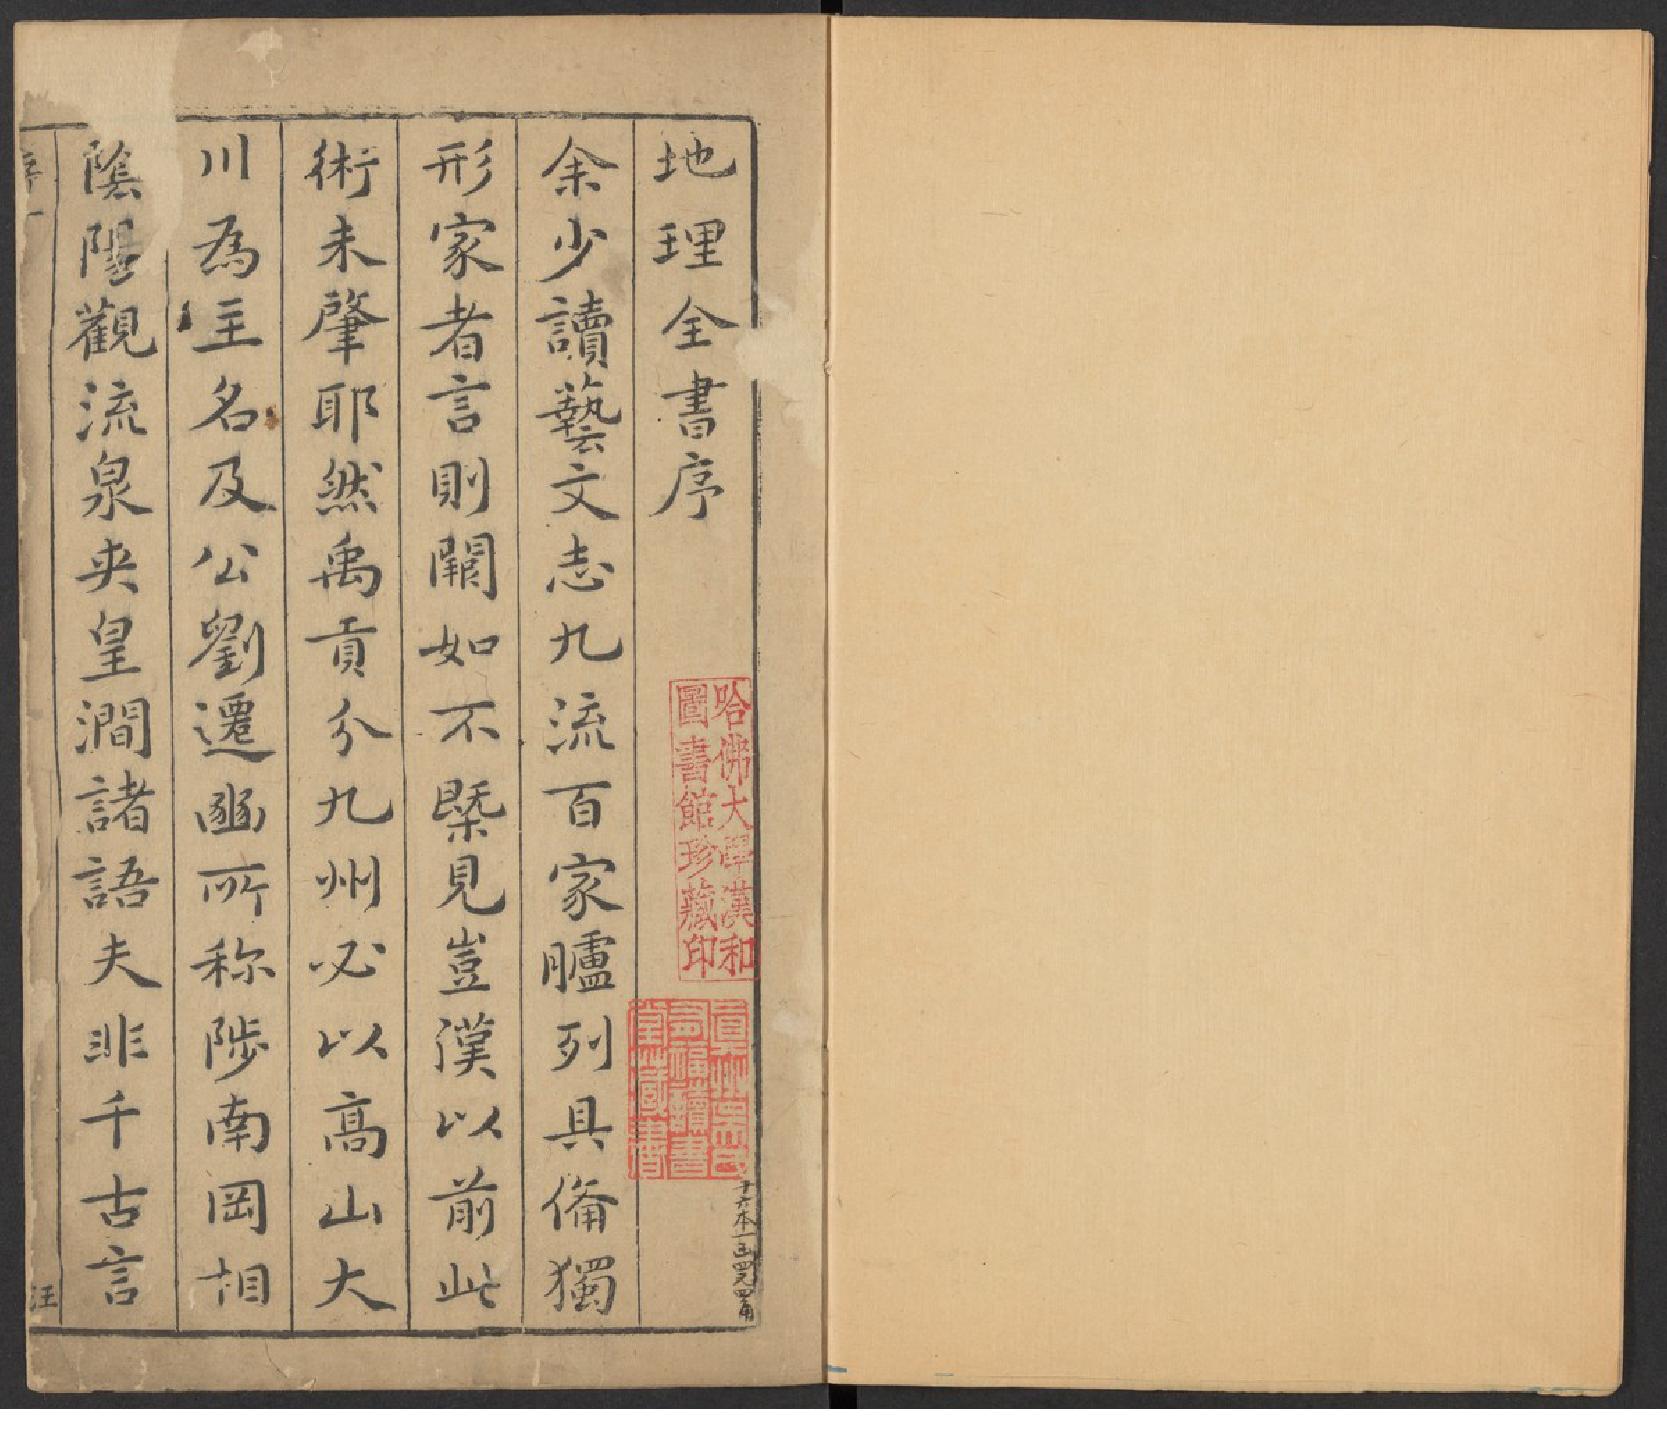 地理全書序
余少讀藝文志九流百家臚列具俻獨
形家者言則闕如不槩見豈漢以前此
術未肈耶然禹貢分九州必以高山大
川為主名及公劉遷豳所称陟南岡相
陰陽觀流泉夾皇澗諸語夫非千古言
序一
汪
哈佛大學漢和
圖書館珍藏印
福讀書
堂藏書
十六本一函四元四角